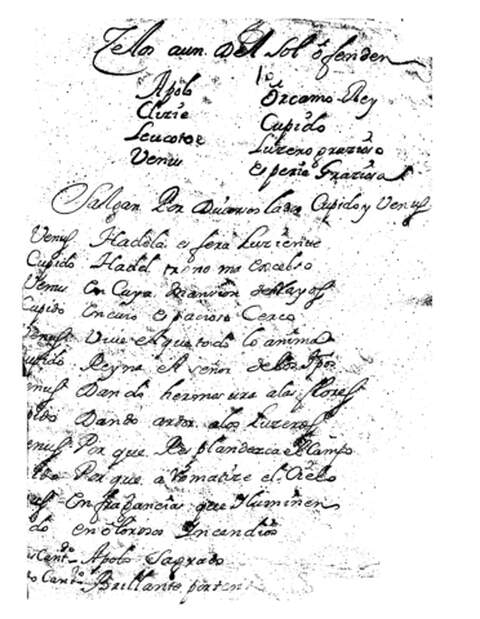 Zelos aun Del Sol ofenden
Apolo Orcamo Rey
Clizie Cupido
Leucotoe Luzero grazioso
Venus Esperia Graziosa
Salgan Por Diversos lados Cupido y Venus
Venus Ha de la esfera Luziente
Cupido Ha del trono mas Excelso
Venus En Cuya Mansion de Rayos
Cupido En cuio espacioso Cerco
Venus Vive el que todo lo anima
Cupido Reyna el señor de los
Venus Dando hermosura a las flores
Cupido Dando ardor a los Luzeros
Venus Por que Resplandezca el Campo
Por que aromatize el Cielo
Venus En fragancias que Iluminen
do en olorosos Incendios
us Cantdo Apolo Sagrado
do Cantdo Brillante